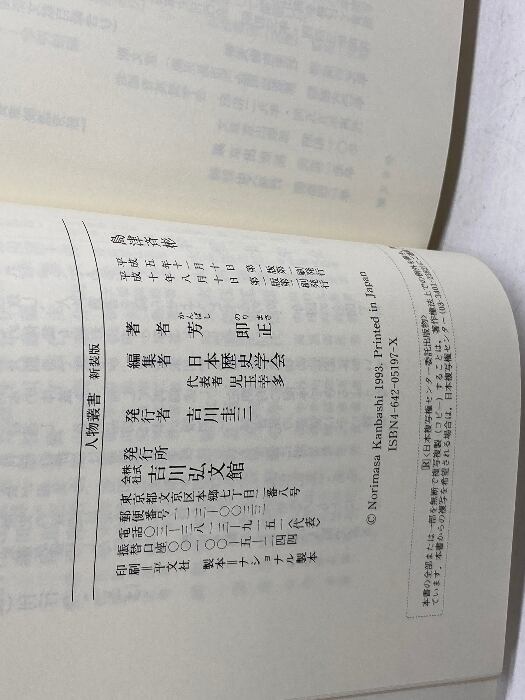 人物叢書 新装版
島津斉彬
平成五年十一月十日 第一版第一刷発行
平成十年八月十日 第一版第二刷発行
著者 芳即正
かんばし のりまさ
編集者 日本歴史学会
代表者 児玉幸多
発行者 吉川圭三
発行所
株式会社 吉川弘文館
東京都文京区本郷七丁目二番八号
郵便番号一一三―〇〇三三
電話〇三―三八一三―九一五一〈代表〉
振替口座〇〇一〇〇―五―二四四
印刷=平文社 製本=ナショナル製本
© Norimasa Kanbashi 1993. Printed in Japan
ISBN4-642-05197-X
Ⓡ〈日本複写権センター委託出版物〉
本書の全部または一部を無断で複写複製(コピー)することは、著作権法上での例外を
ています。本書からの複写を希望される場合は、日本複写権センター(03-3401